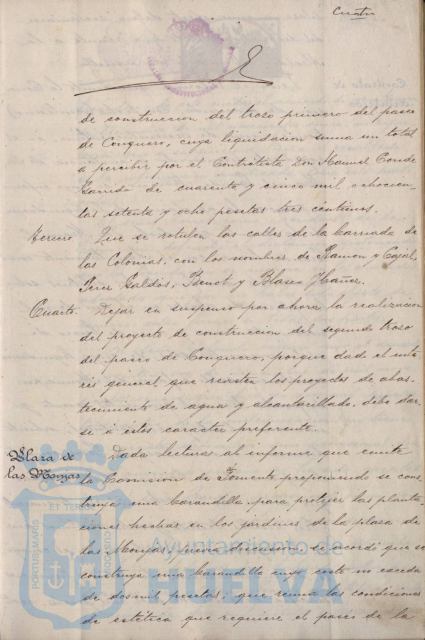 Cuatro
de construccion del trozo primero del paseo
de Conquero, cuya liquidacion suma un total
á percibir por el Contratista Don Manuel Conde
Garrido de cuarenta y cinco mil ochocien-
tas setenta y ocho pesetas tres céntimos.
Tercero Que se rotulen las calles de la barriada de
las Colonias, con los nombres de Ramon y Cajal,
Perez Galdós, Benot y Blasco Ibañez.
Cuarto. Dejar en suspenso por ahora la realizacion
del proyecto de construccion del segundo trozo
del paseo de Conquero, porque dado el inte-
rés general que revisten los proyectos de abas-
tecimiento de agua y alcantarillado, debe dar-
se á éstos carácter preferente.
Plaza de
las Monjas
Dada lectura al informe que emite
la Comision de Fomento proponiendo se cons-
truya una barandilla para protejer las planta-
ciones hechas en los jardines de la plaza de
las Monjas, previa discusion se acordó que se
construya una barandilla cuyo coste no exceda
de dosmil pesetas; que reuna las condiciones
de estética que requiere el paseo de la
Ayuntamiento de
HUELVA